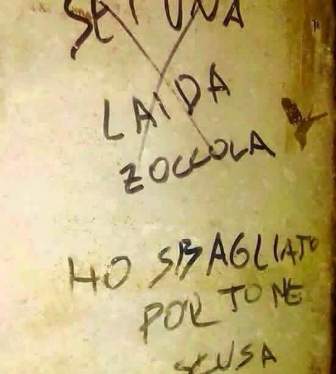 SEI UNA
LAIDA
ZOCCOLA
HO SBAGLIATO
PORTONE
SCUSA